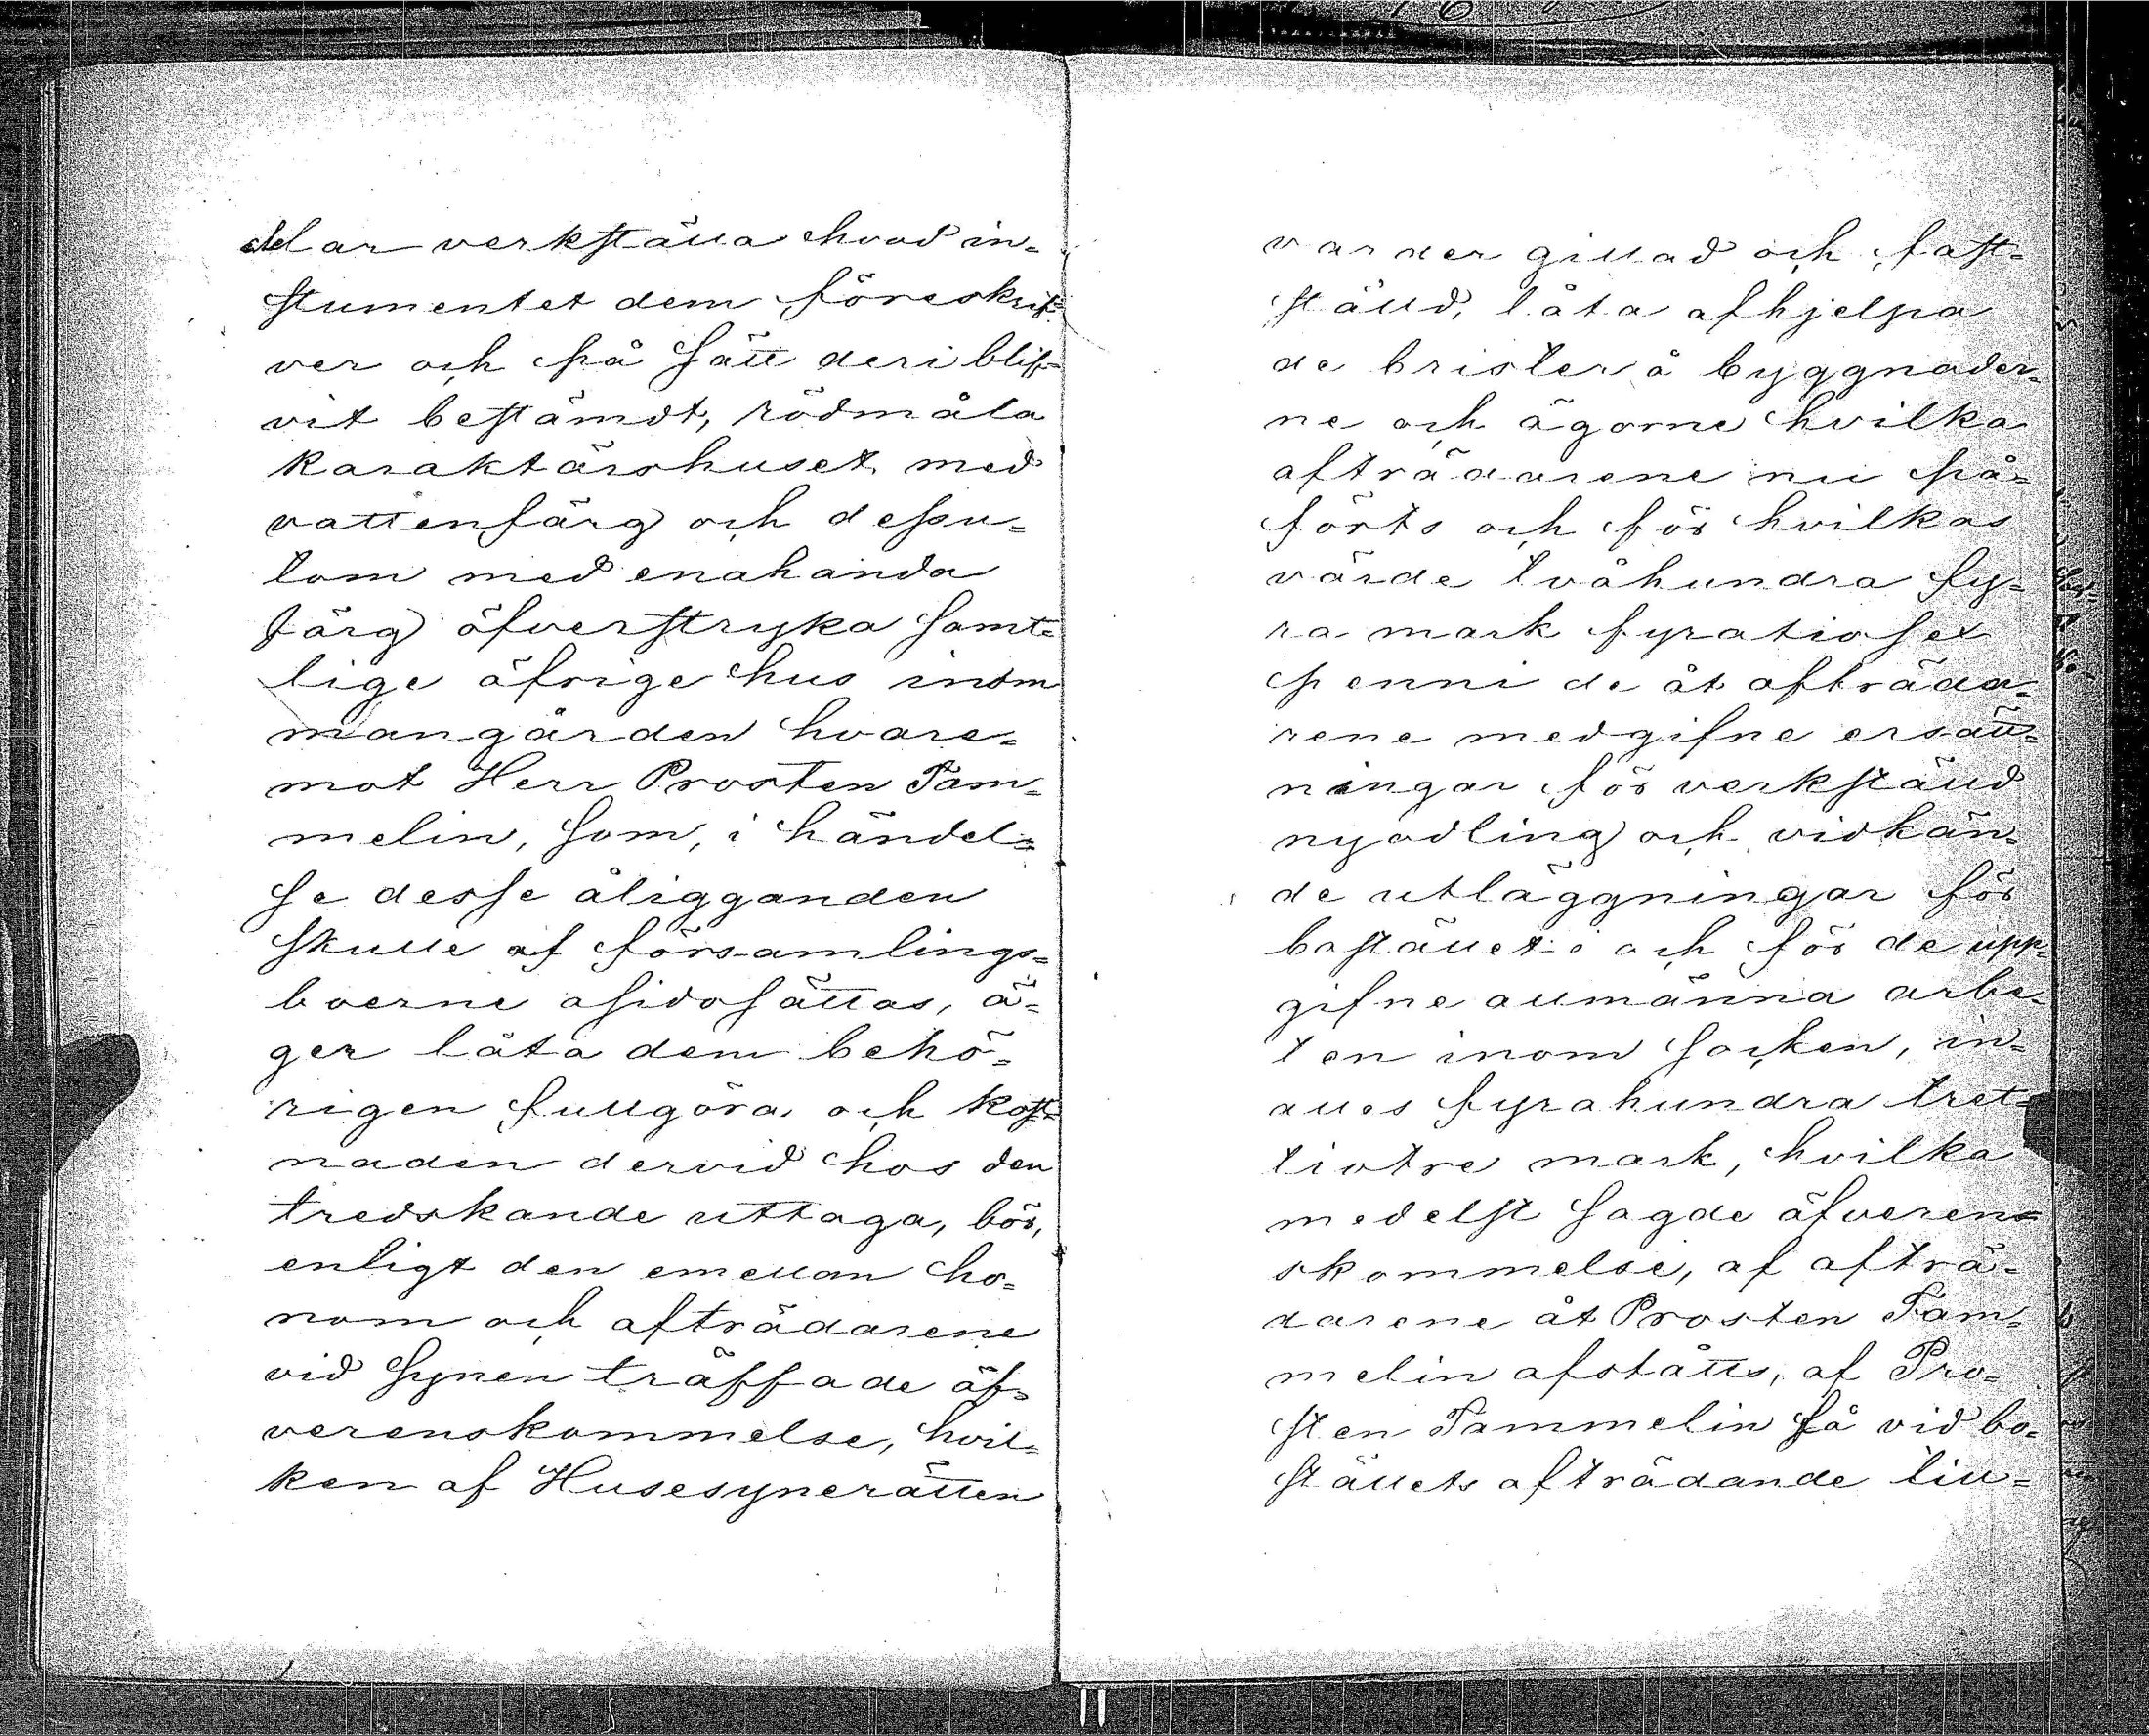 dlar verkställa hvad in-
stumentet dem föreskrif-
ver och på sätt deri blif-
vit bestämdt, rödmåla
karaktärshuset med
vattenfärg och dessu-
tom med enahanda
färg öfverstryka samt-
lige öfrige hus inom
mangården hvare-
mot Herr Prosten Tam-
melin, som, i händel-
se desse åligganden
skulle af församlings-
boerne åsidosättas, ä-
ger låta dem behö-
rigen fullgöra och kost-
naden dervid hos den
tredskande uttaga, bör,
enligt den emellan ho-
nom och afträdarene
vid synen träffade öf-
verenskommelse, hvil-
ken af Husesynerätten
varder gillad och fast-
ställd, låta afhjelpa
de brister å byggnader-
ne och ägorne hvilka
afträdarene nu på-
förts och för hvilkas
värde tvåhundra fy-
ra mark fyratiosex
penni de åt afträda-
rene medgifne ersätt-
ningar för verkställd
nyodling och vidkän-
de utläggningar för
bostället i och för de upp-
gifne allmänna arbe-
ten inom socken, in-
alles fyrahundra tret-
tiotre mark, hvilka
medelst sagde öfverens-
kommelse, af afträ-
darene åt Prosten Tam-
melin afståtts, af Pro-
sten Tammelin få vid bo-
ställets afträdande till-